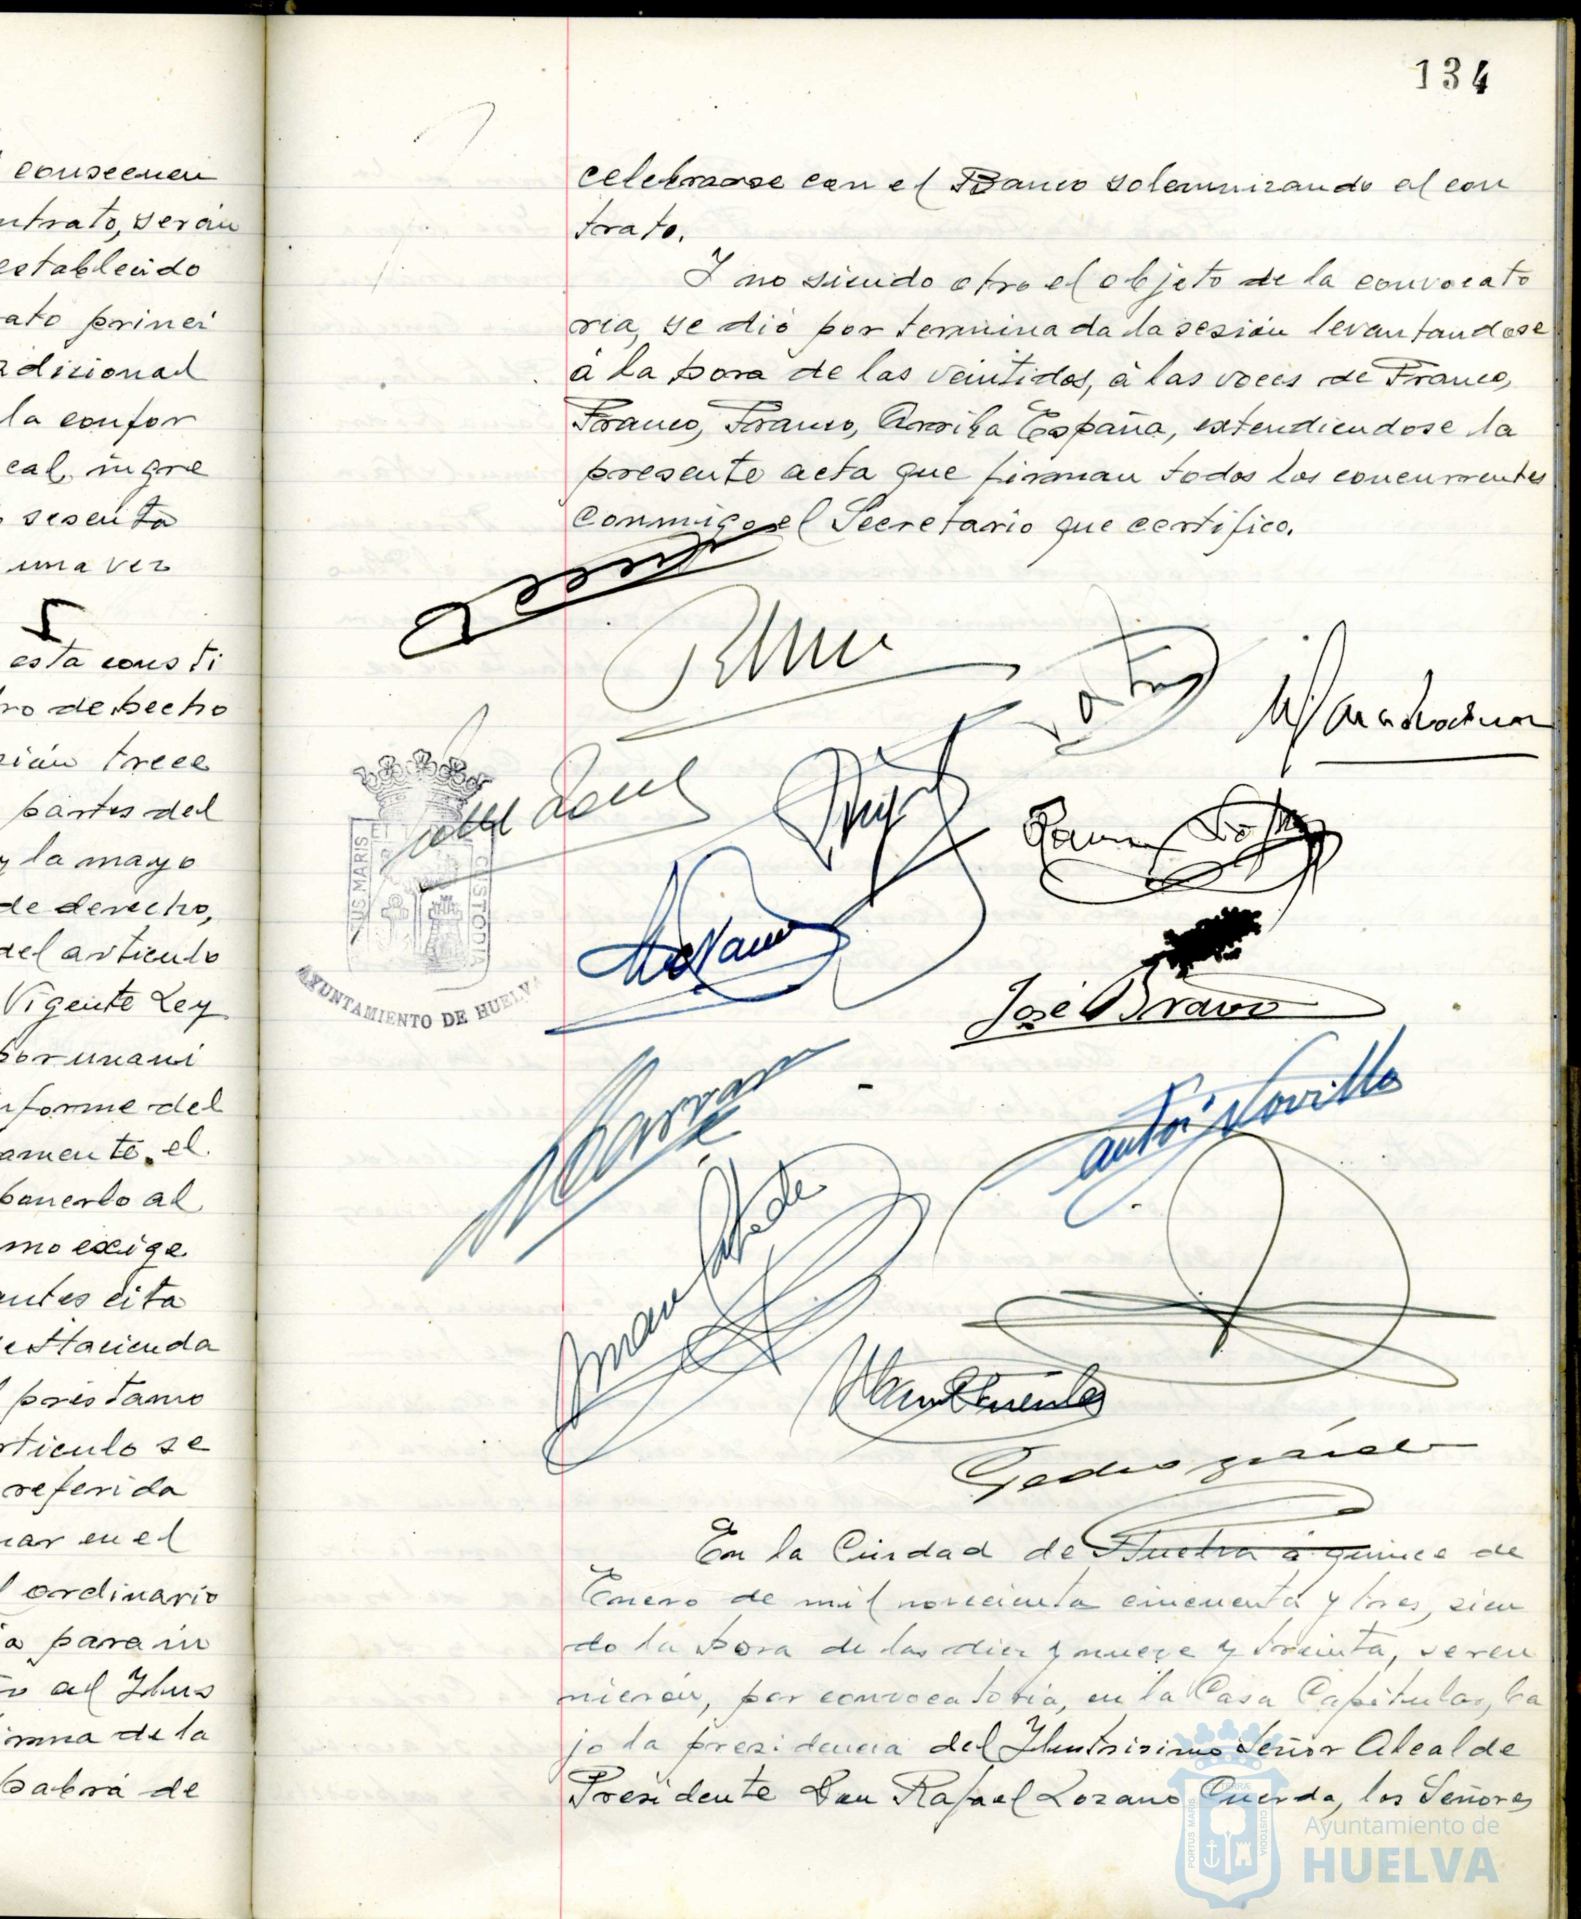 consecuen
ntrato, serán
establecido
ato princi
adicional
la confor
cal, ingre
sesenta
una vez
esta consti
ro de hecho
sión trece
partes del
y la mayo
de derecho,
del articulo
Vigente Ley
por unani
nforme del
amente, el
ponerlo al
mo exige
antes cita
e Hacienda
prestamo
rticulo se
referida
nar en el
ordinario
a para in
al Ylus
irma de la
habrá de
134
celebrarse con el Banco solemnizando el con
trato.
Y no siendo otro el objeto de la convocato
ria, se dió por terminada la sesión levantandose
á la hora de las veintidos, á las voces de Franco,
Franco, Franco, Arriba España, extendiendose la
presente acta que firman todos los concurrentes
conmigo el Secretario que certifico.
PORTUS MARIS ET CUSTODIA
AYUNTAMIENTO DE HUELVA
José Bravo
Antº Novillo
Manl Fuentes
Pedro
En la Ciudad de Huelva á quince de
Enero de mil novecienta cincuenta y tres, sien
do la hora de las diez y nueve y treinta, se reu
nieron, por convocatoria, en la Casa Capitular, ba
jo la presidencia del Ylustrisimo Señor Alcalde
Presidente Don Rafael Lozano Cuerda, los Señores
PORTUS MARIS ET TERRAE CUSTODIA
Ayuntamiento de
HUELVA